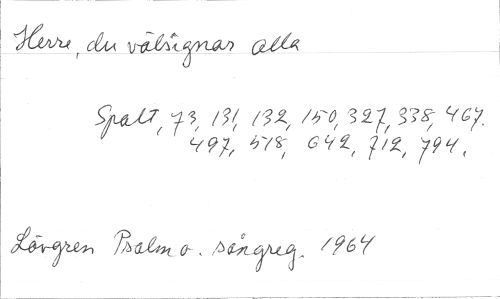 Herre, du välsignar alla
Spalt, 73, 131, 132, 150, 327, 338, 467.
497, 518, 642, 712, 794.
Lövgren Psalm o. sångreg. 1964